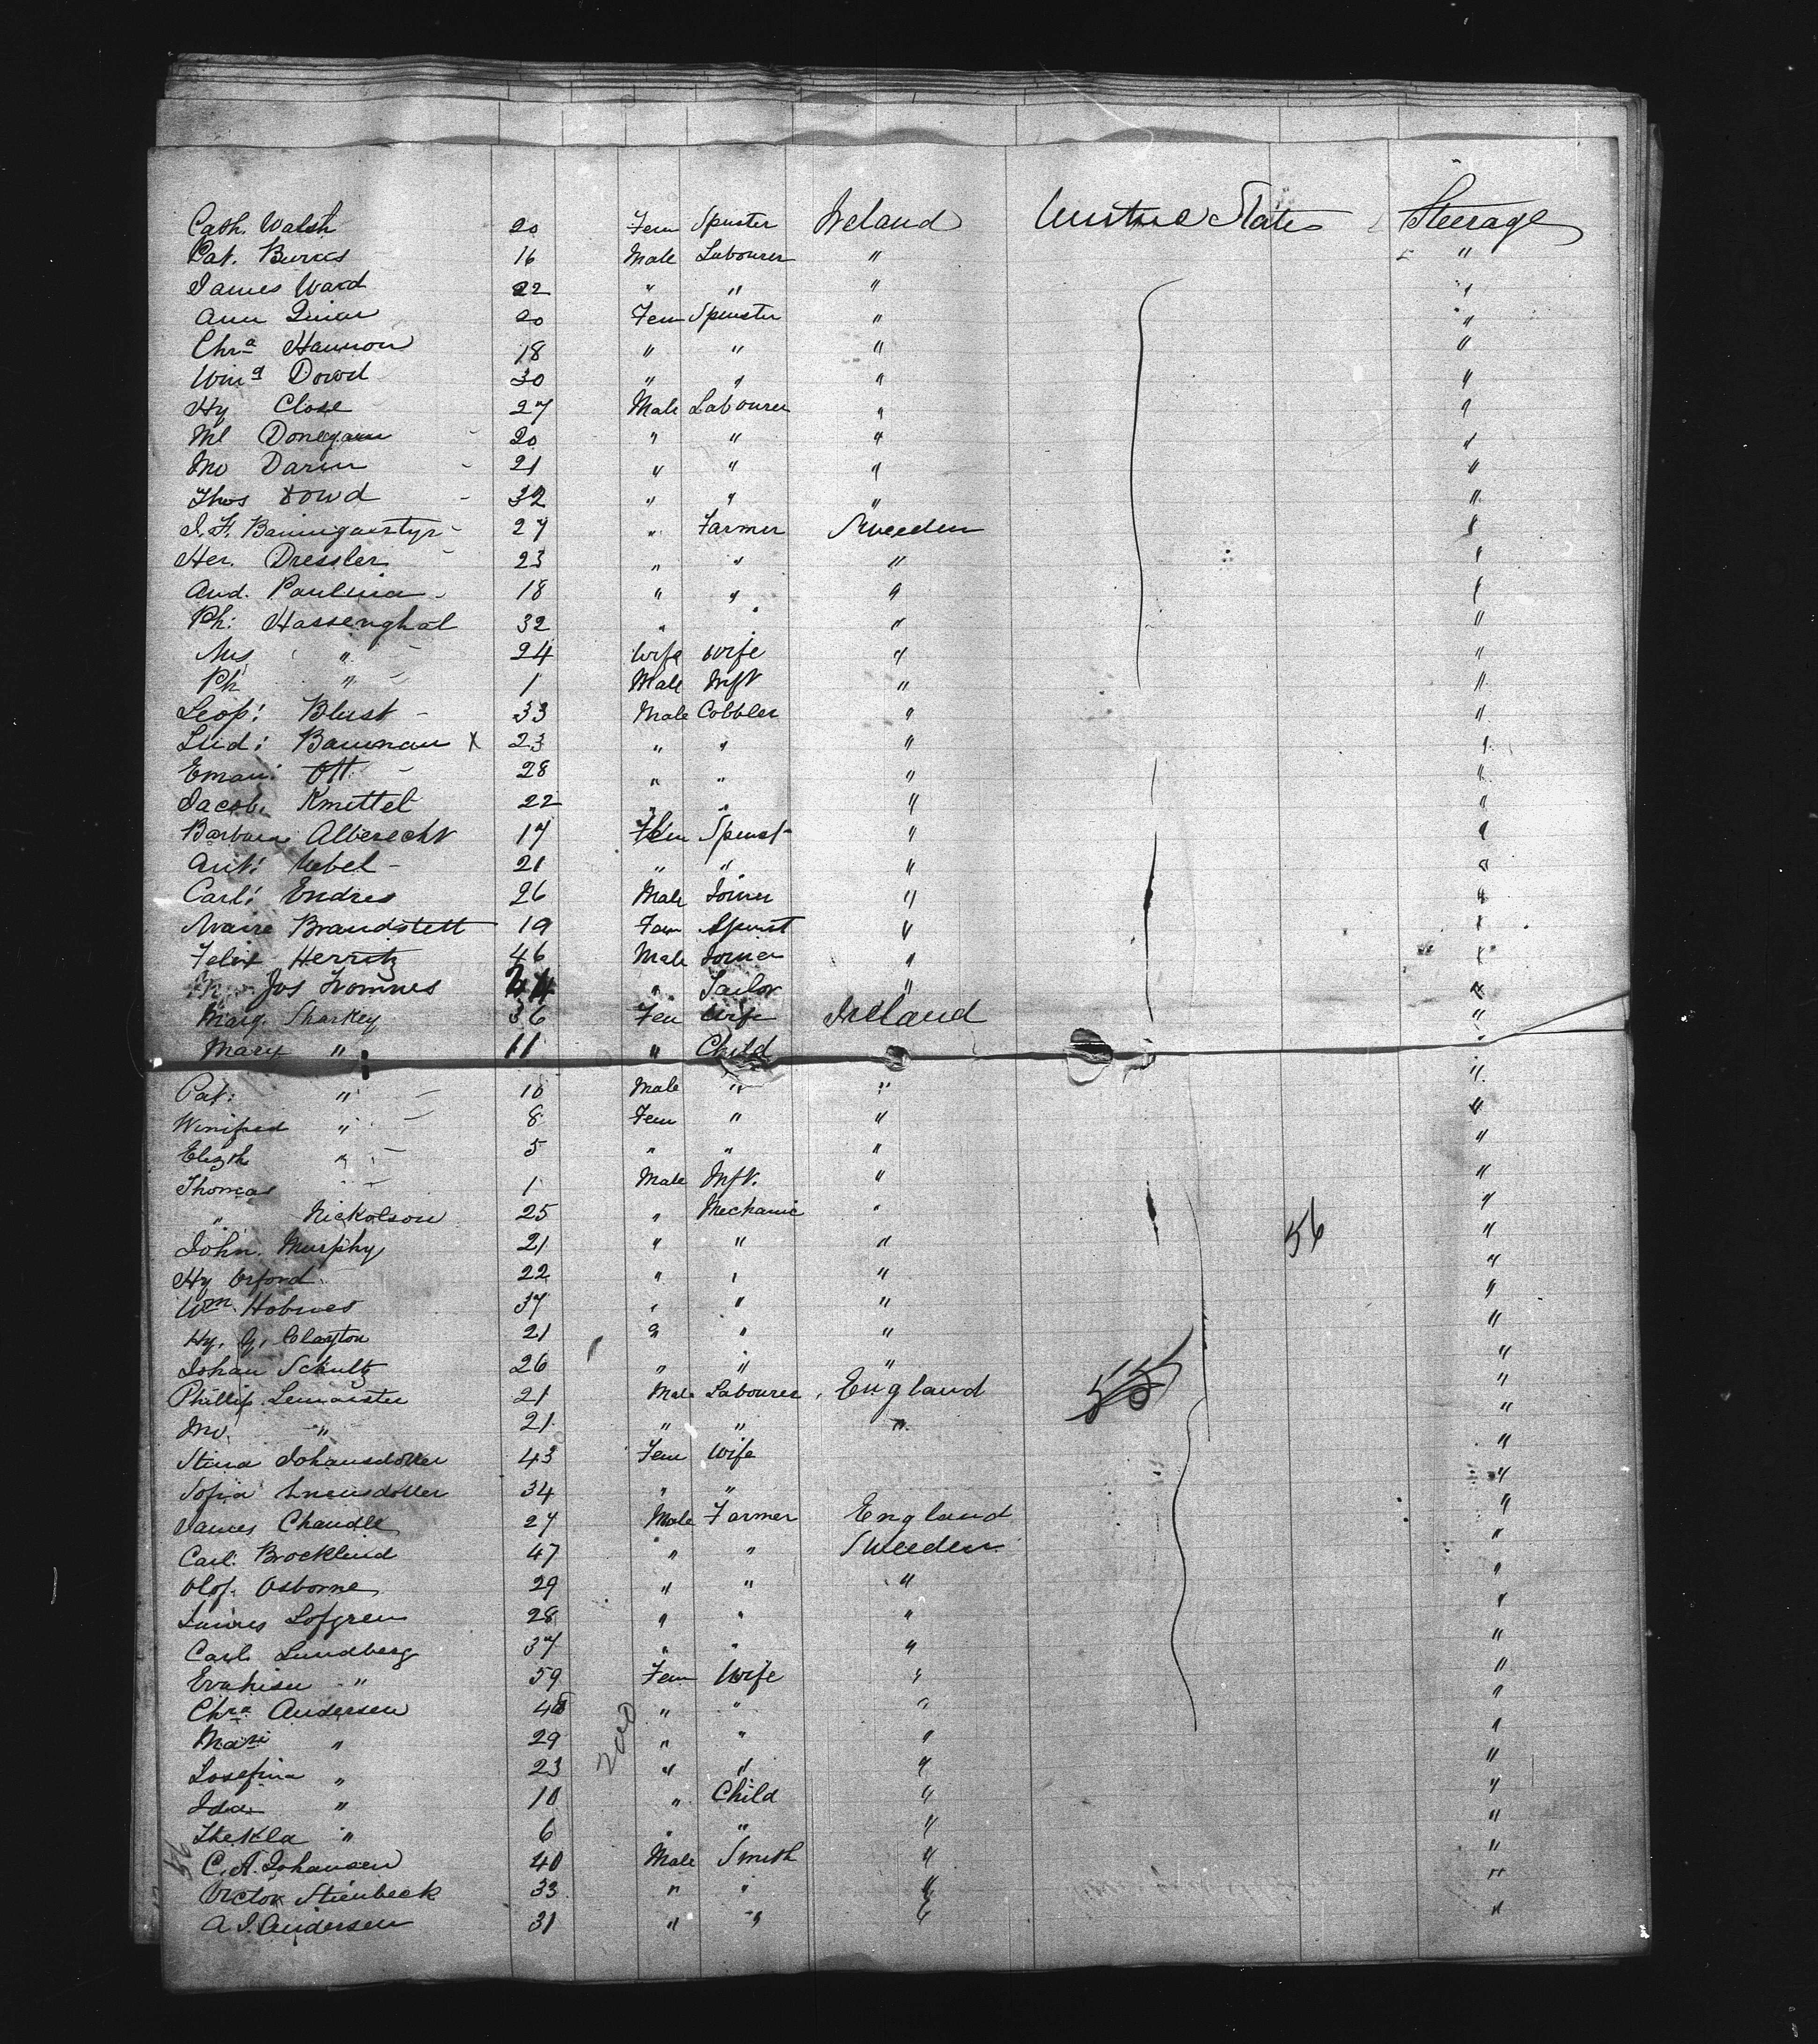 Cath. Walsh 20 Fem Spinster Ireland United States Steerage
Pat. Burns 16 Male Labourer " "
James Ward 22 " " " "
Ann 20 Fem Spinster " "
Chrª Hannon 18 " " " "
Winᵈ Dowd 30 " " " "
Hy Close 27 Male Labourer " "
Ml Donegan 20 " " " "
Jno 21 " " " "
Thos Dowd 32 " " " "
J. F. 27 " Farmer Sweeden "
Her. Dressler 23 " " " "
And. Paulina 18 " " " "
Ph: Hassenghal 32 " " " "
Mrs " 24 Wife Wife " "
Ph " 1 Male Inft " "
Leop: Blust 33 Male Cobbler " "
Bauman X 23 " " " "
Eman: Ott 28 " " " "
Jacob. Kmittel 22 " " " "
Barbara Alberecht 17 Fem Spinst " "
Ant: Uebel 21 " " " "
Carl: Endres 26 Male Joiner " "
Maire Brandstett 19 Fem Spinst " "
Felix Herritz 46 Male Joiner " "
Jos 24 " Tailor " "
Marg. Sharkey 36 Fem Wife Ireland "
Mary " 11 " Child "
Pat: " 10 Male " " "
Winifred " 8 Fem " " "
Elizth " 5 " " " "
Thomas " 1 Male Inft. " "
" Nickolson 25 " Mechanic " "
John. Murphy 21 " " " 56 "
Hy Orford 22 " " " "
Wm. Holmes 37 " " " "
Hy. G. Clayton 21 " " " "
Johan Schultz 26 " " " "
Phillip Lemaister 21 Male Labourer England 55 "
Jno. " 21 " " " "
Stina Johansdotter 43 Fem Wife "
Sofia 34 " " "
James Chandle 27 Male Farmer England "
Carl: Brocklind 47 " " Sweeden "
Olof. Osborne 29 " " " "
Lofgren 28 " " " "
Carl. Lundberg 37 " " " "
" 59 Fem Wife " "
Chra Andersen 48 " " " "
Mari " 29 " " " "
Josefina " 23 " " " "
Ida " 10 " Child " "
Thekla " 6 " " " "
C. A. Johansen 40 Male Smith " "
Victor Stienbeck 33 " " " "
A. J. Andersen 31 " " " "
200
56